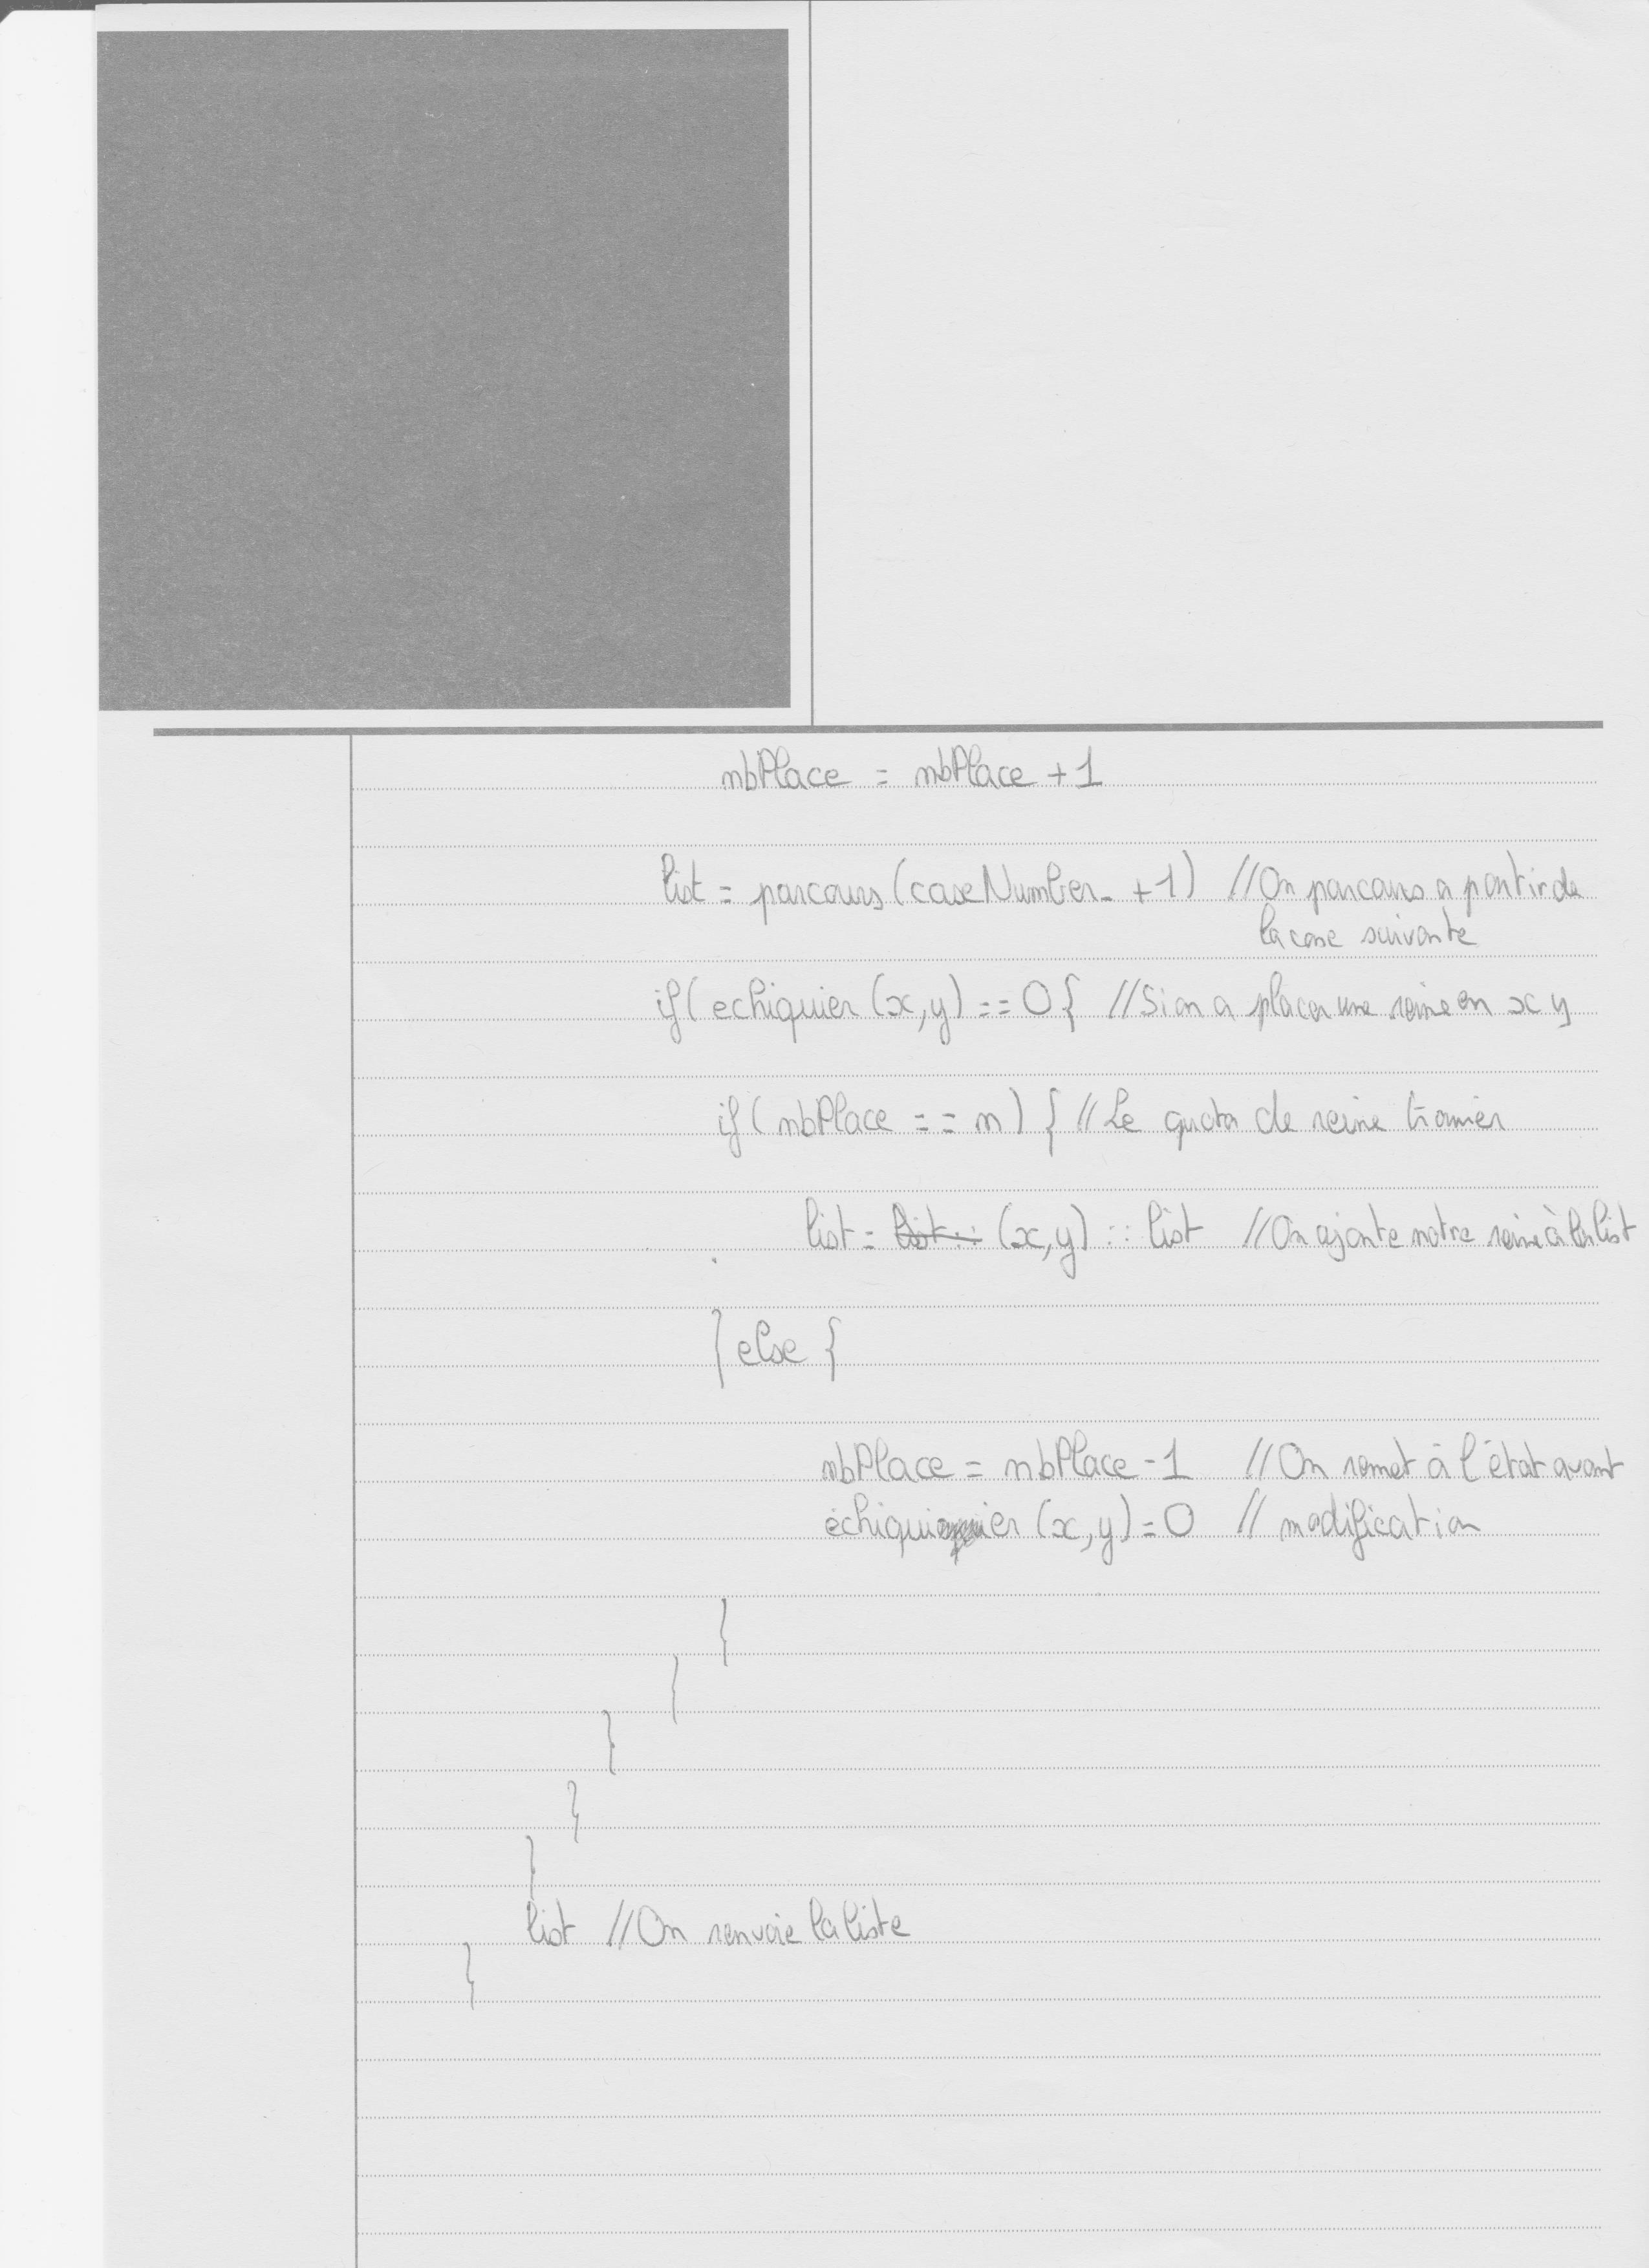 nbPlace = nbPlace + 1
list = parcours (caseNumber_ + 1) // On parcours a partir de
la case suivante
if ( echiquier (x, y) == 0 { // Si on a placer une reine en x y
if ( nbPlace == n ) { // Le quota de reine trouver
list = list :: (x, y) :: list // On ajoute notre reine à la list
} else {
nbPlace = nbPlace - 1 // On remet à l'état avant
échiquier (x, y) = 0 // modification
}
}
}
}
}
list // On renvoie la liste
}